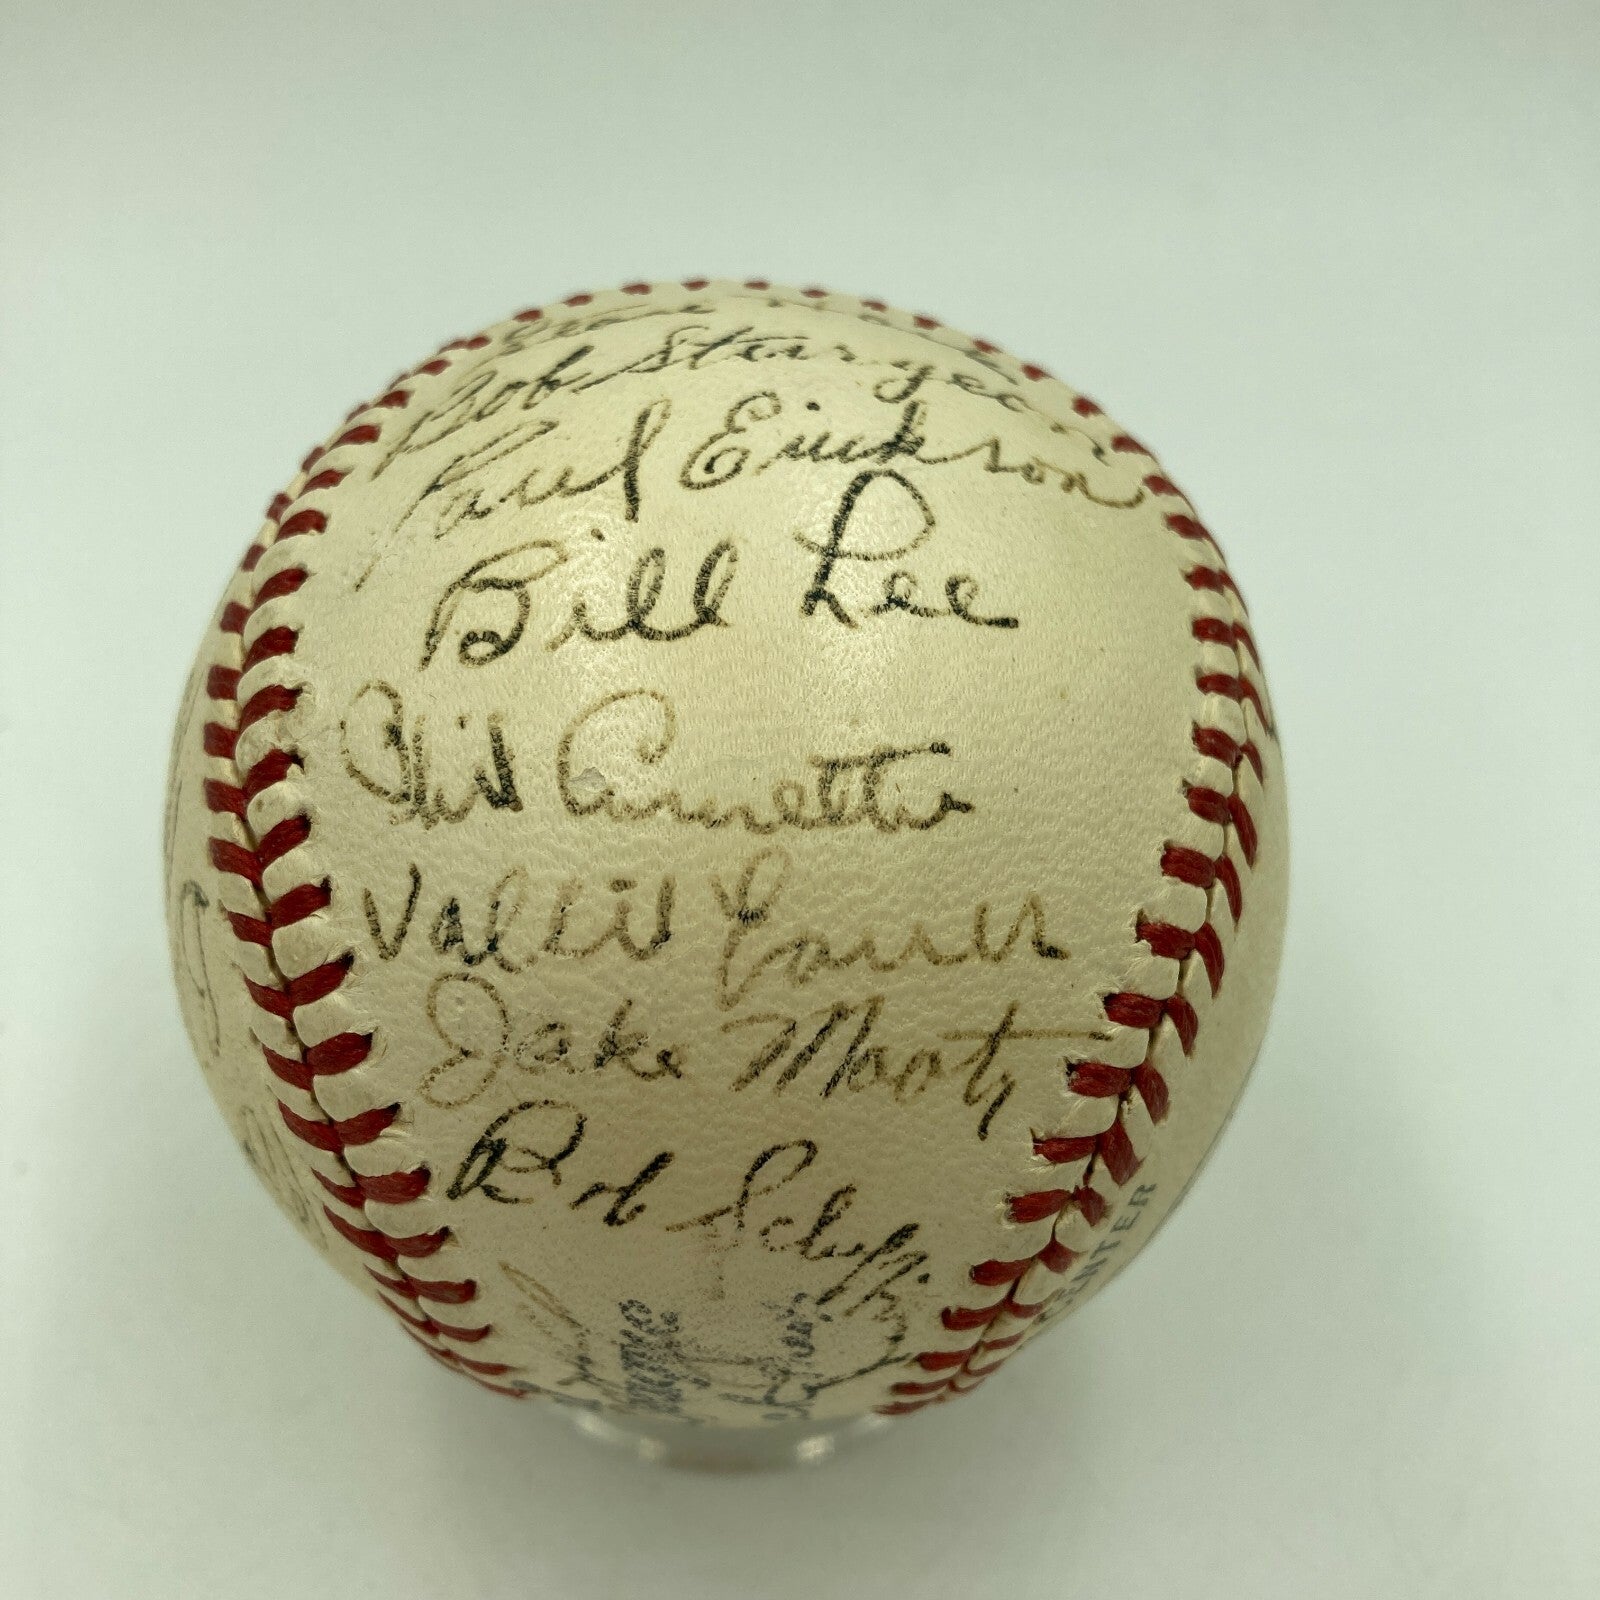 Bob Sturgeon
Paul Erickson
Bill Lee
Phil Cavarretta
Vallie Eaves
Jake Mooty
Bob Scheffing
CENTER